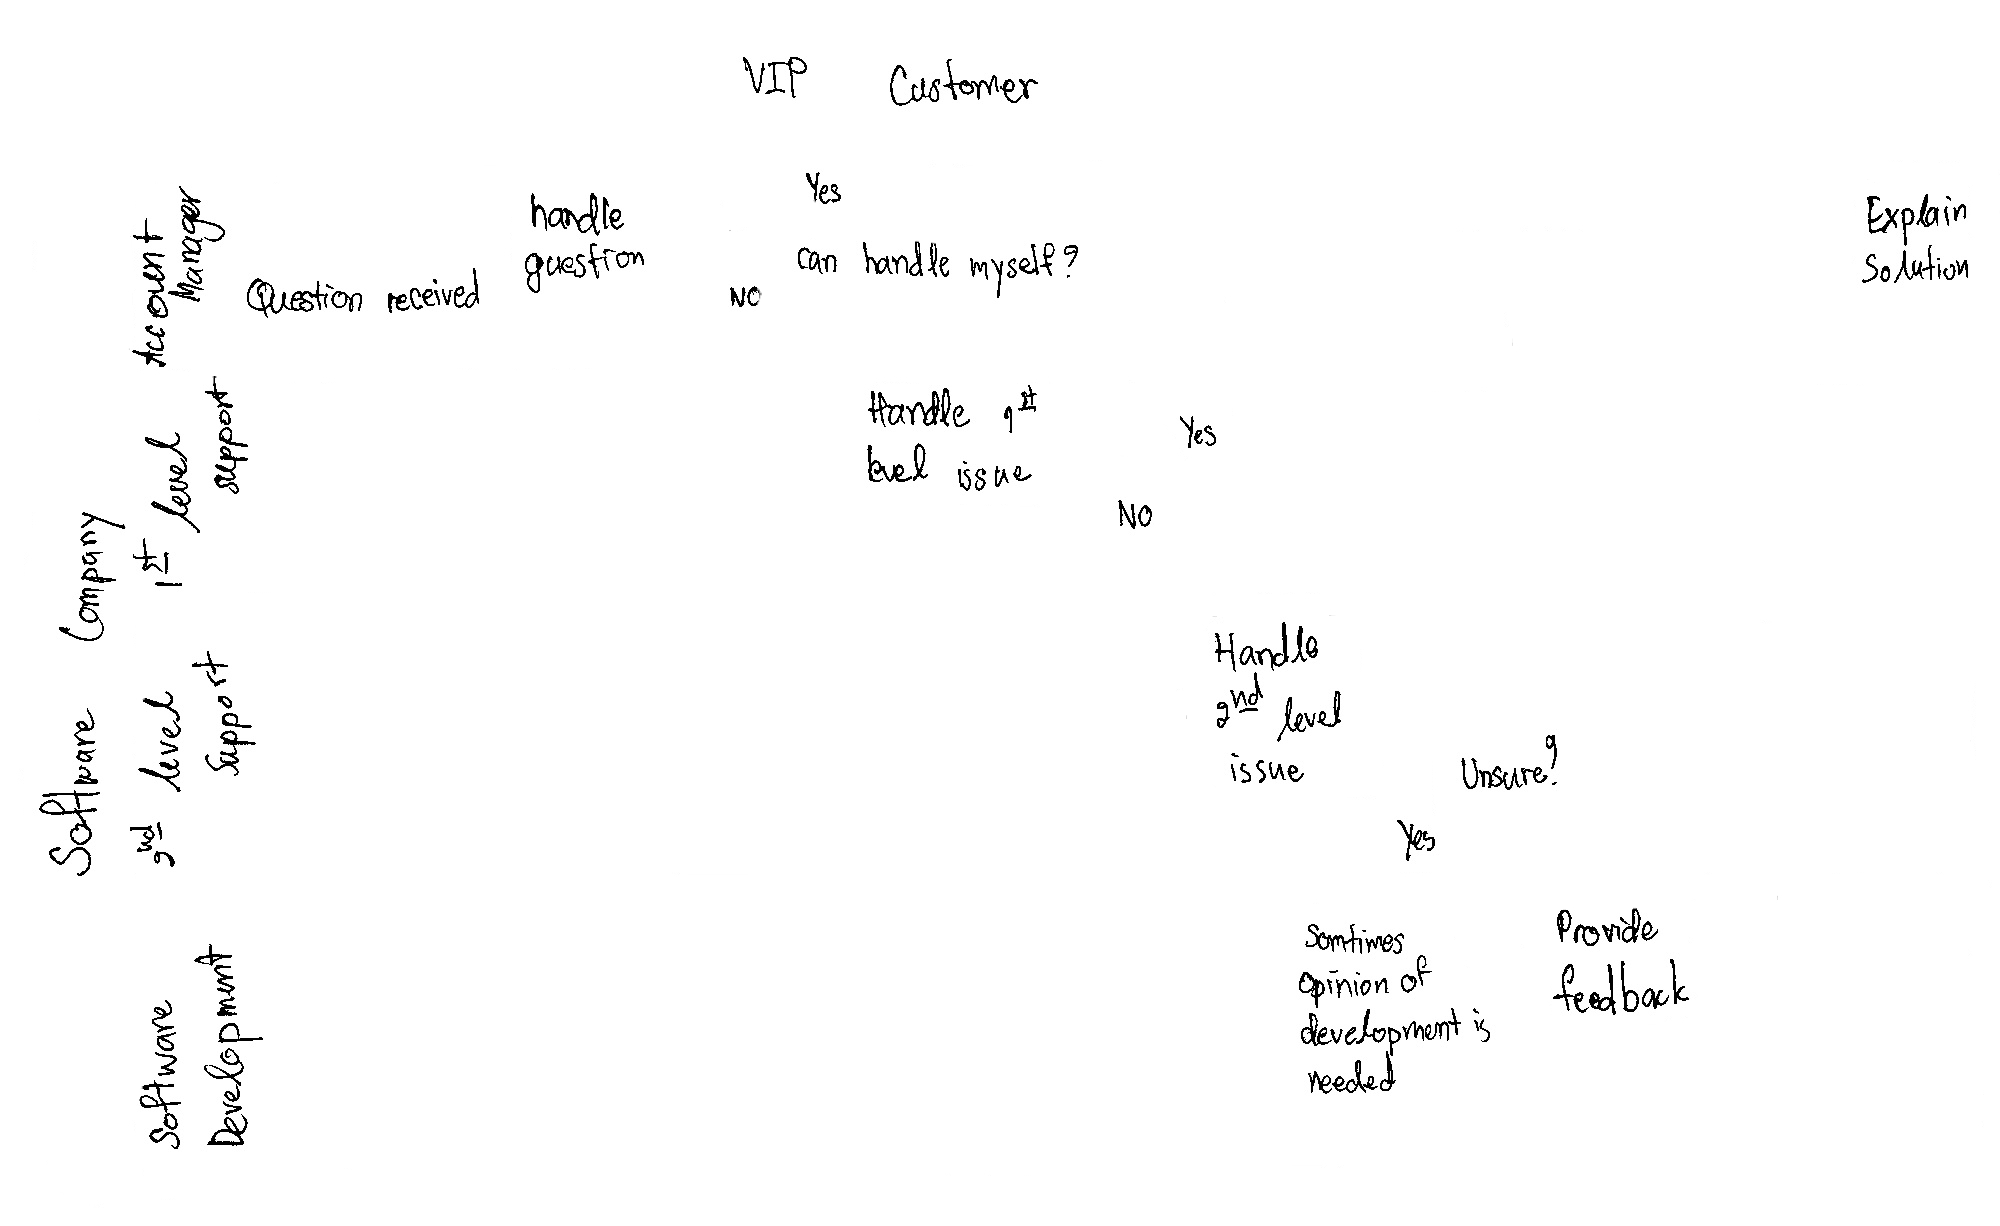 VIP Customer
Account
Manager
Question received
handle
question
Yes
can handle myself?
NO
Explain
Solution
Software Company
1st level
support
Handle 1st
level issue
Yes
NO
2nd level
Support
Handle
2nd level
issue
Unsure?
Yes
Software
Development
Somtimes
opinion of
development is
needed
Provide
feedback